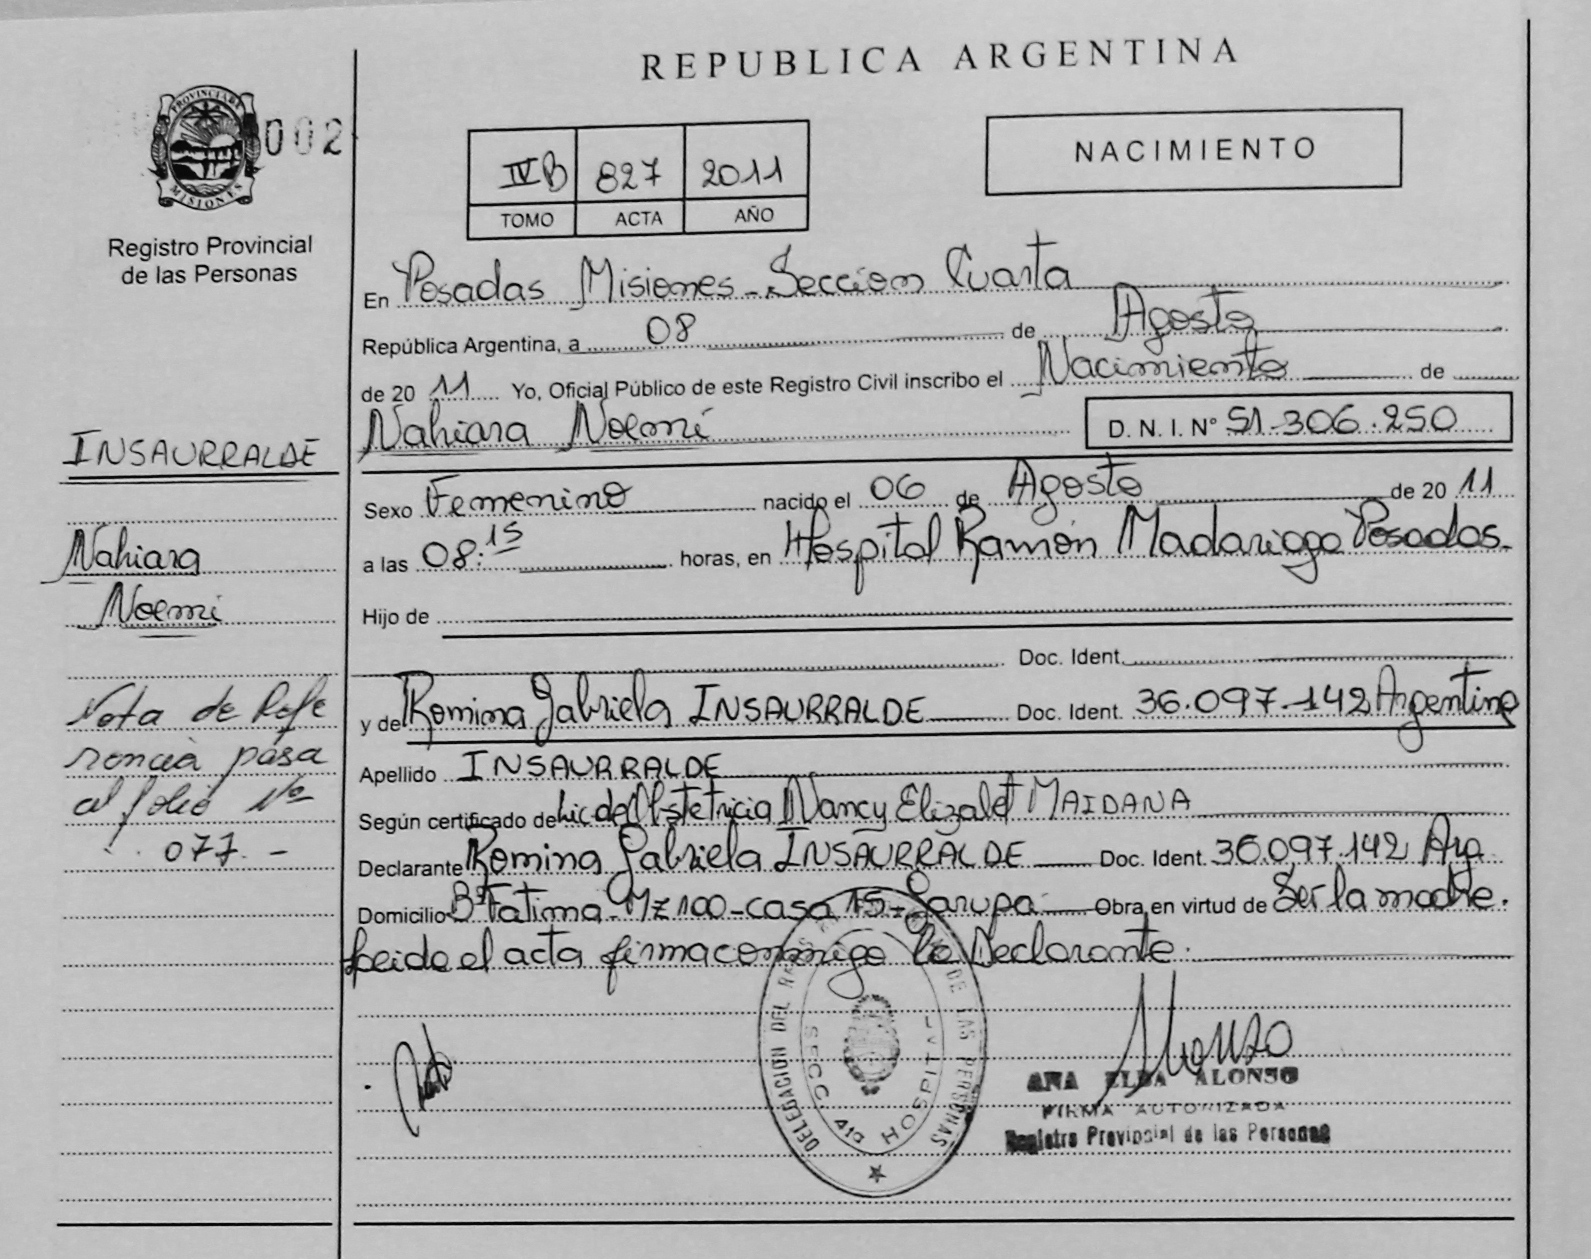 REPUBLICA ARGENTINA
PROVINCIA DE
MISIONES
002
Registro Provincial
de las Personas
IVB 827 2011
TOMO ACTA AÑO
NACIMIENTO
En Posadas Misiones - Seccion Cuarta
República Argentina, a 08 de Agosto
de 20 11 Yo, Oficial Público de este Registro Civil inscribo el Nacimiento de
Nahiara Noemí D. N. I. N° 51.306.250
INSAURRALDE
Nahiara
Noemi
Nota de Refe
rencia pasa
al folio Nº
077. -
Sexo Femenino nacido el 06 de Agosto de 20 11
a las 08:15 horas, en Hospital Ramón Madariaga Posadas.
Hijo de
Doc. Ident.
y de Romina Gabriela INSAURRALDE Doc. Ident. 36.097.142 Argentina
Apellido INSAURRALDE
Según certificado de Lic. de Obstetricia Nancy Elizabet MAIDANA
Declarante Romina Gabriela INSAURRALDE Doc. Ident. 36.097.142 Arg.
Domicilio Bº Fatima - Mz 100 - casa 15 - Garupa Obra en virtud de Ser la madre.
Leida el acta firma conmigo la Declarante.
DELEGACION DEL DE LAS PERSONAS
SECC. 4ta HOSPITAL
Alonso
ANA ELBA ALONSO
FIRMA AUTORIZADA
Registro Provincial de las Personas